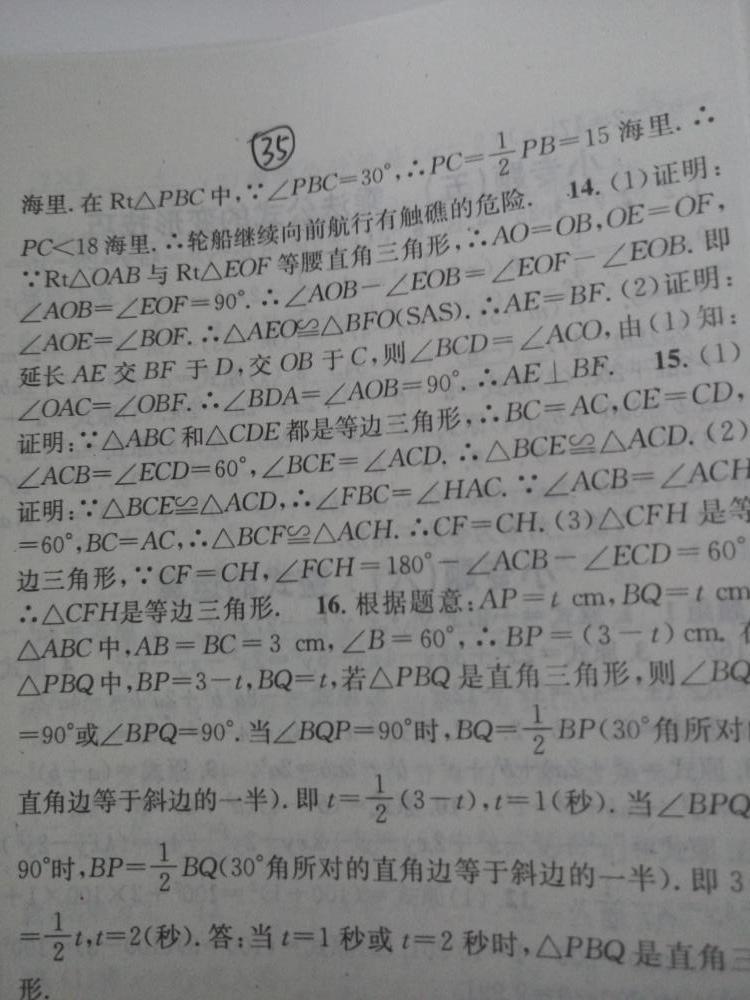 35
海里. 在 Rt△PBC 中,∵∠PBC=30°,∴PC=1/2 PB=15 海里. ∴
PC<18 海里. ∴轮船继续向前航行有触礁的危险. 14. (1)证明:
∵Rt△OAB 与 Rt△EOF 等腰直角三角形,∴AO=OB,OE=OF,
∠AOB=∠EOF=90°. ∴∠AOB-∠EOB=∠EOF-∠EOB. 即
∠AOE=∠BOF. ∴△AEO≌△BFO(SAS). ∴AE=BF. (2)证明:
延长 AE 交 BF 于 D,交 OB 于 C,则∠BCD=∠ACO,由(1)知:
∠OAC=∠OBF. ∴∠BDA=∠AOB=90°. ∴AE⊥BF. 15. (1)
证明:∵△ABC 和△CDE 都是等边三角形,∴BC=AC,CE=CD,
∠ACB=∠ECD=60°,∠BCE=∠ACD. ∴△BCE≌△ACD. (2)
证明:∵△BCE≌△ACD,∴∠FBC=∠HAC. ∵∠ACB=∠ACH
=60°,BC=AC,∴△BCF≌△ACH. ∴CF=CH. (3)△CFH 是等
边三角形,∵CF=CH,∠FCH=180°-∠ACB-∠ECD=60°
∴△CFH是等边三角形. 16. 根据题意:AP=t cm,BQ=t cm
△ABC 中,AB=BC=3 cm,∠B=60°,∴BP=(3-t)cm.
△PBQ 中,BP=3-t,BQ=t,若△PBQ 是直角三角形,则∠BQ
=90°或∠BPQ=90°. 当∠BQP=90°时,BQ=1/2 BP(30°角所对
直角边等于斜边的一半). 即 t=1/2(3-t),t=1(秒). 当∠BPQ
90°时,BP=1/2 BQ(30°角所对的直角边等于斜边的一半). 即 3
=1/2 t,t=2(秒). 答:当 t=1 秒或 t=2 秒时,△PBQ 是直角三
形.